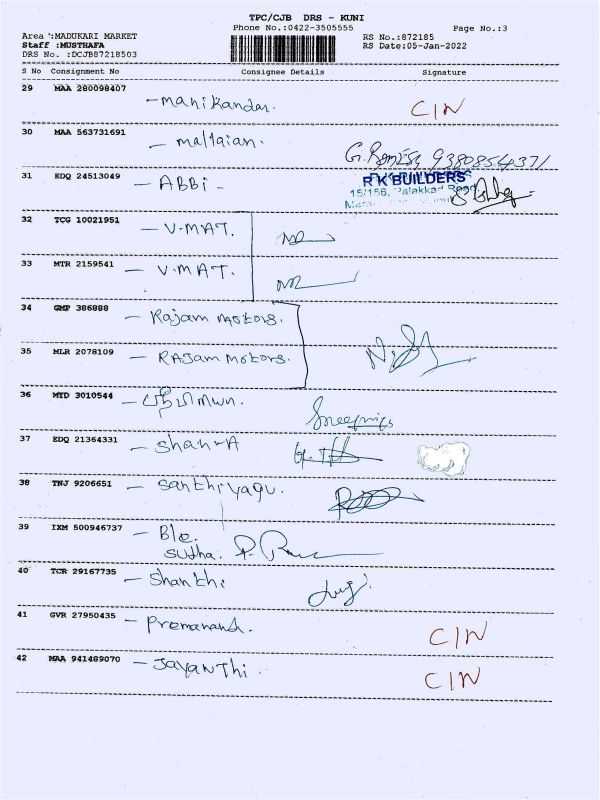 TPC/CJB DRS - KUNI
Phone No.:0422-3505555
Page No.:3
Area :MADUKARI MARKET
RS No.:872185
Staff :MUSTHAFA
RS Date:05-Jan-2022
DRS No. :DCJB87218503
S No Consignment No Consignee Details Signature
29 MAA 280098407
- manikandan. CIN
30 MAA 563731691
- mallaian.
G. Ramesh 9380854371
31 EDQ 24513049
- ABBI - R K BUILDERS
15/156, Palakkad Road
32 TCG 10021951
- V.MAT.
33 MTR 2159541
- V.MAT.
34 GMP 386888
- Rajam Motors.
35 MLR 2078109
- RAJam Motors.
36 MYD 3010544
37 EDQ 21364331
38 TNJ 9206651
- Santhiyagu.
39 IXM 500946737
- Ble.
Sutha.
40 TCR 29167735
- Shanthi
41 GVR 27950435
- Premanand.
CIN
42 MAA 941489070
- Jayanthi.
CIN